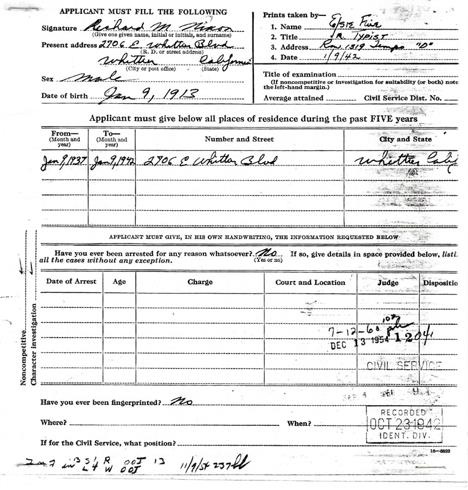 APPLICANT MUST FILL THE FOLLOWING
Signature Richard M. Nixon
(Give one given name, initial or initials, and surname)
Present address 2706 E. Whittier Blvd
(R. D. or street address)
Whittier California
(City or post office) (State)
Sex Male
Date of birth Jan 9, 1913
Prints taken by—
1. Name Elsie Fuir
2. Title JR Typist
3. Address Rm 1319 Tempo "D"
4. Date 1/9/42
Title of examination
(If noncompetitive or investigation for suitability (or both) note
the left-hand margin.)
Average attained Civil Service Dist. No.
Applicant must give below all places of residence during the past FIVE years
From— To— Number and Street City and State
(Month and year) (Month and year)
Jan 9, 1937 Jan 9, 1942 2706 E Whittier Blvd Whittier Calif
APPLICANT MUST GIVE, IN HIS OWN HANDWRITING, THE INFORMATION REQUESTED BELOW
Have you ever been arrested for any reason whatsoever? No If so, give details in space provided below, listi
all the cases without any exception. (Yes or no)
Date of Arrest Age Charge Court and Location Judge Dispositio
Noncompetitive
Character investigation
7-12-60
DEC 13 1954 1204
CIVIL SERVICE
Have you ever been fingerprinted? No
Where? When?
RECORDED
OCT 23 1942
IDENT. DIV.
If for the Civil Service, what position?
11/9/54